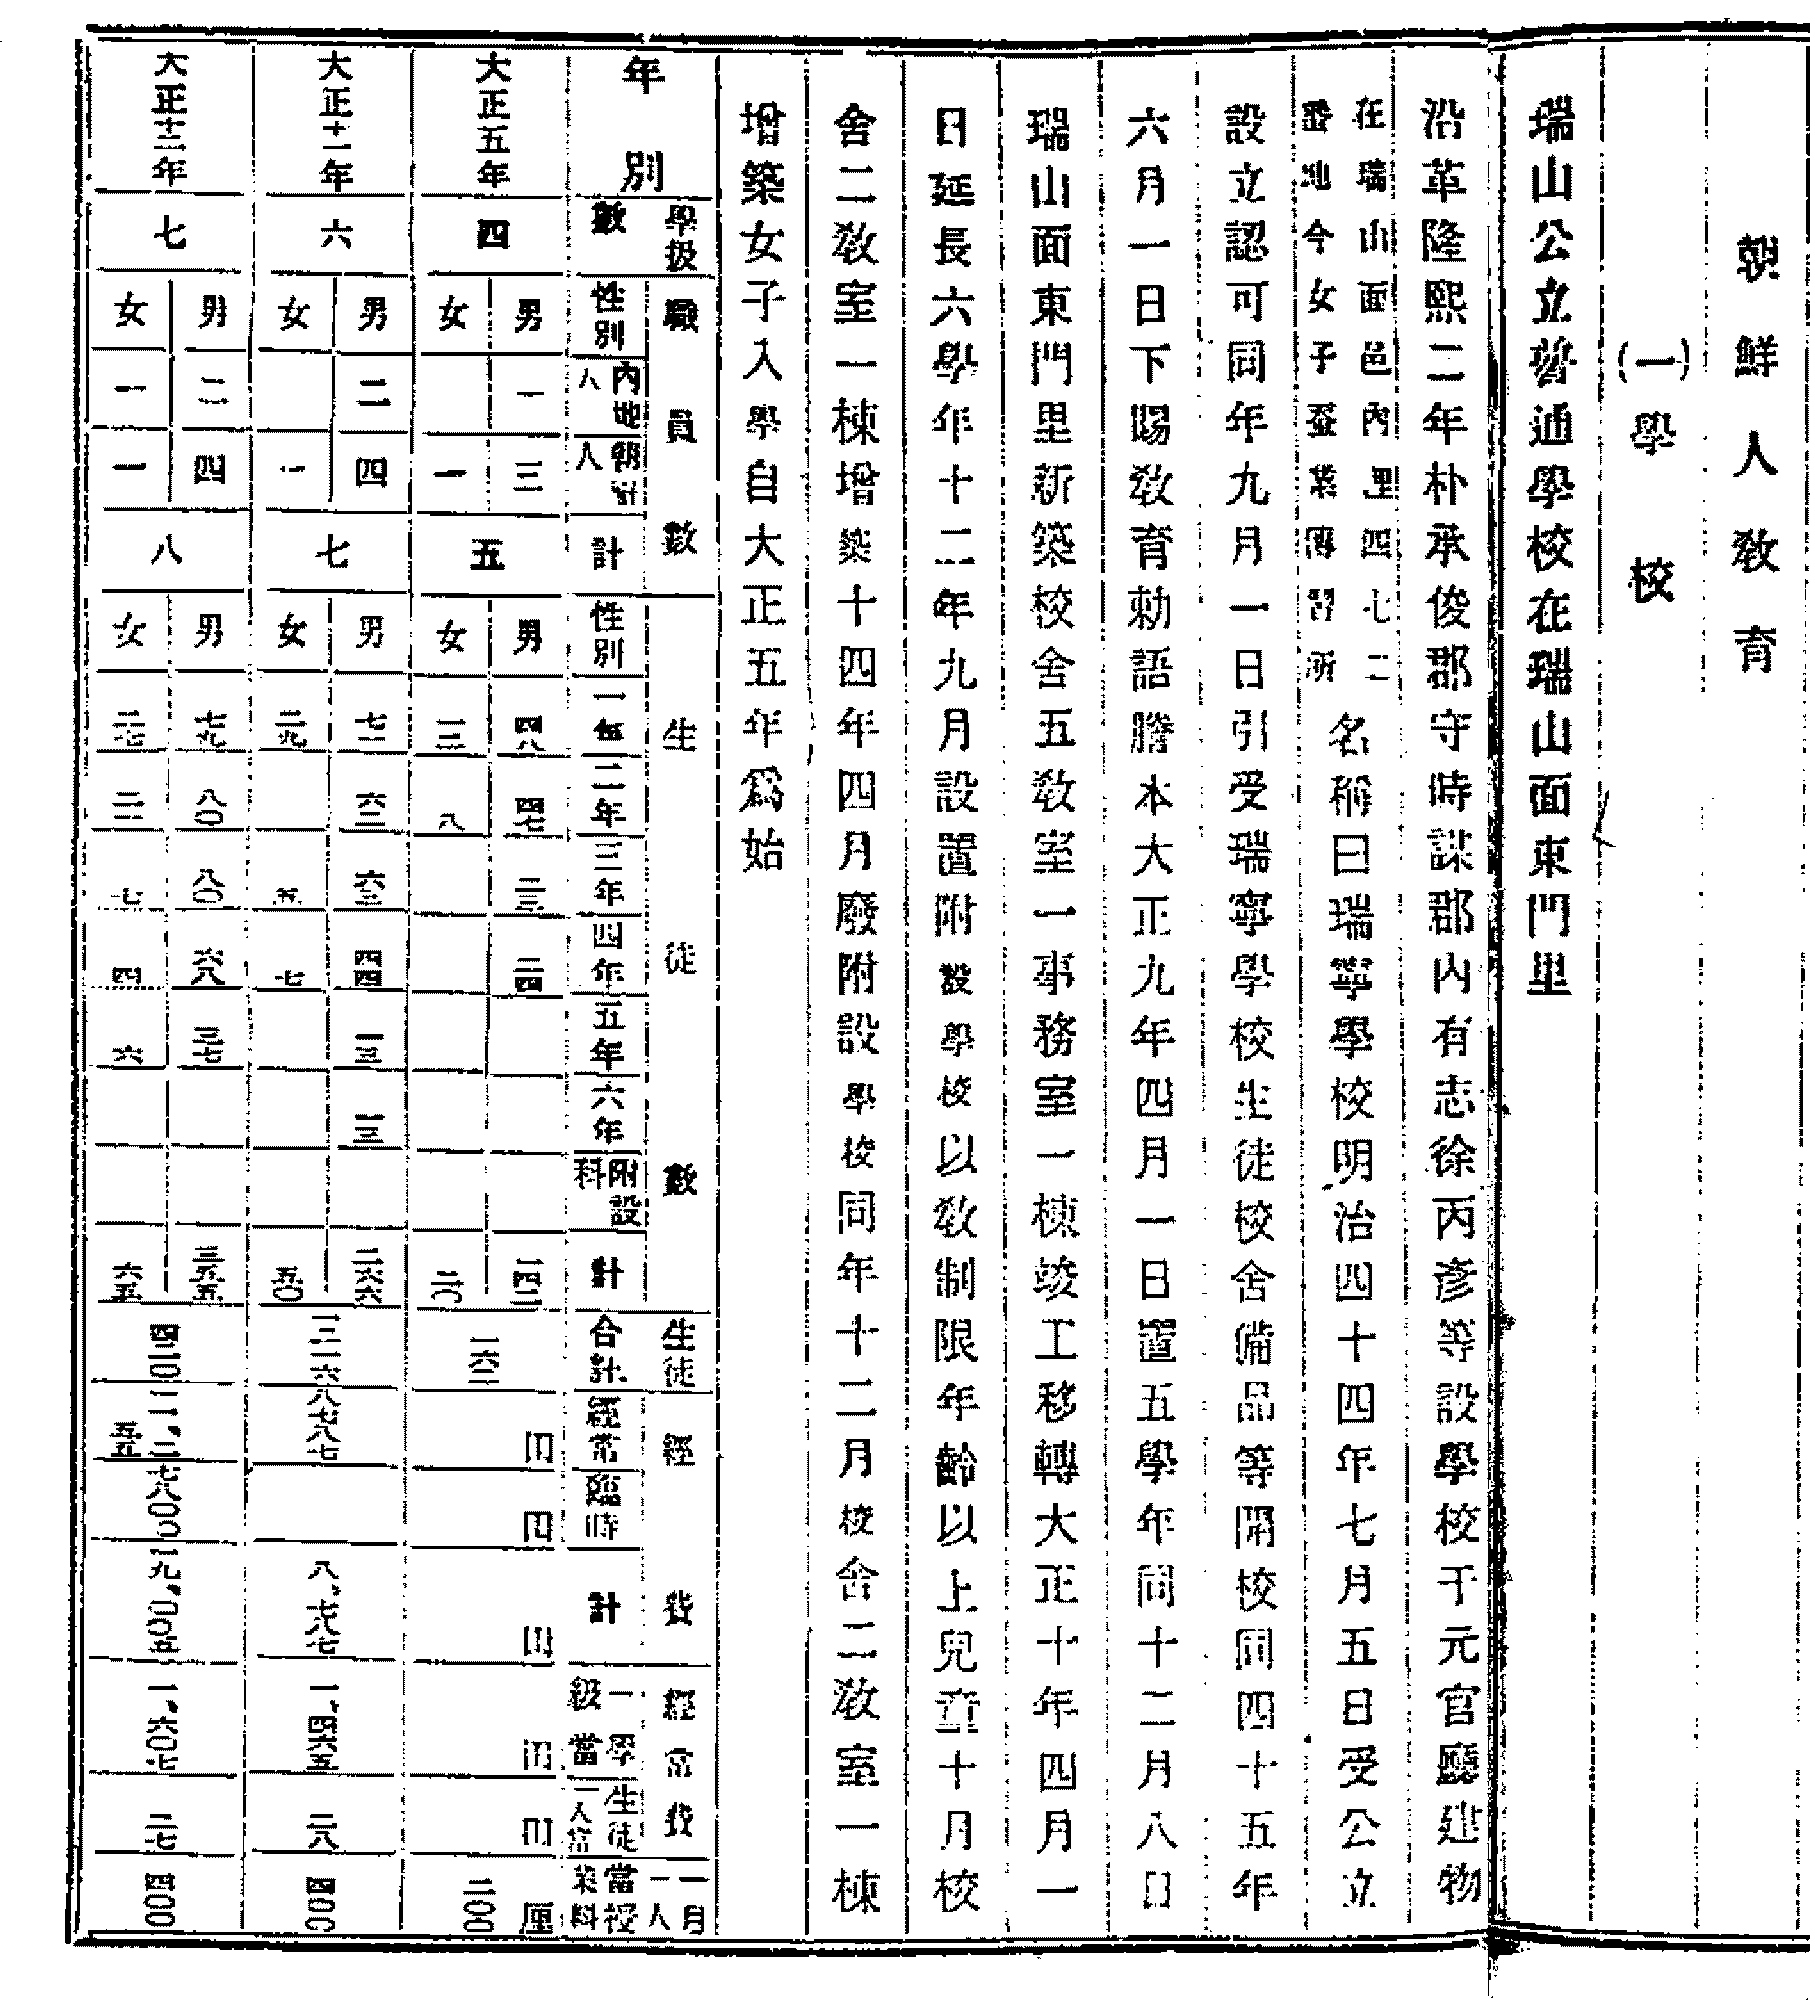 朝鮮人敎育
(一)學校
瑞山公立普通學校在瑞山面東門里
沿革隆熙二年朴承俊郡守時謀郡內有志徐丙彦等設學校于元官廳建物
在瑞山面邑內里四七二
番地今女子蚕業傳習所
名稱曰瑞寧學校明治四十四年七月五日受公立
設立認可同年九月一日引受瑞寧學校生徒校舍備品等開校同四十五年
六月一日下賜敎育勅語謄本大正九年四月一日置五學年同十二月八日
瑞山面東門里新築校舍五敎室一事務室一棟竣工移轉大正十年四月一
日延長六學年十二年九月設置附設學校以敎制限年齡以上兒童十月校
舍二敎室一棟增築十四年四月廢附設學校同年十二月校舍二敎室一棟
增築女子入學自大正五年爲始
年別 學扱數 職員數 性別 內地人 朝鮮人 計 生徒數 性別 一年 二年 三年 四年 五年 六年 附設科 計 生徒合計 經費 經常 臨時 計 經常費 一學級當 生徒一人當 一月一人當授業料
大正五年 四 男 一 三 女 一 五 男 四八 四七 二三 二四 一四二 女 一三 八 二〇 一六二 円 円 円 円 円 二〇〇厘
大正十一年 六 男 二 四 女 一 七 男 七一 六二 六三 四四 一三 一三 二六六 女 二九 五 七 五〇 三一六 八、七八七 八、七八七 一、四六五 二八 四〇〇
大正十三年 七 男 二 四 女 一 一 八 男 七九 八〇 八〇 六八 三七 三五五 女 二七 二一 七 四 六 六五 四二〇 一一、二五五 七、八〇〇 一九、〇五五 一、六〇七 二七 四〇〇